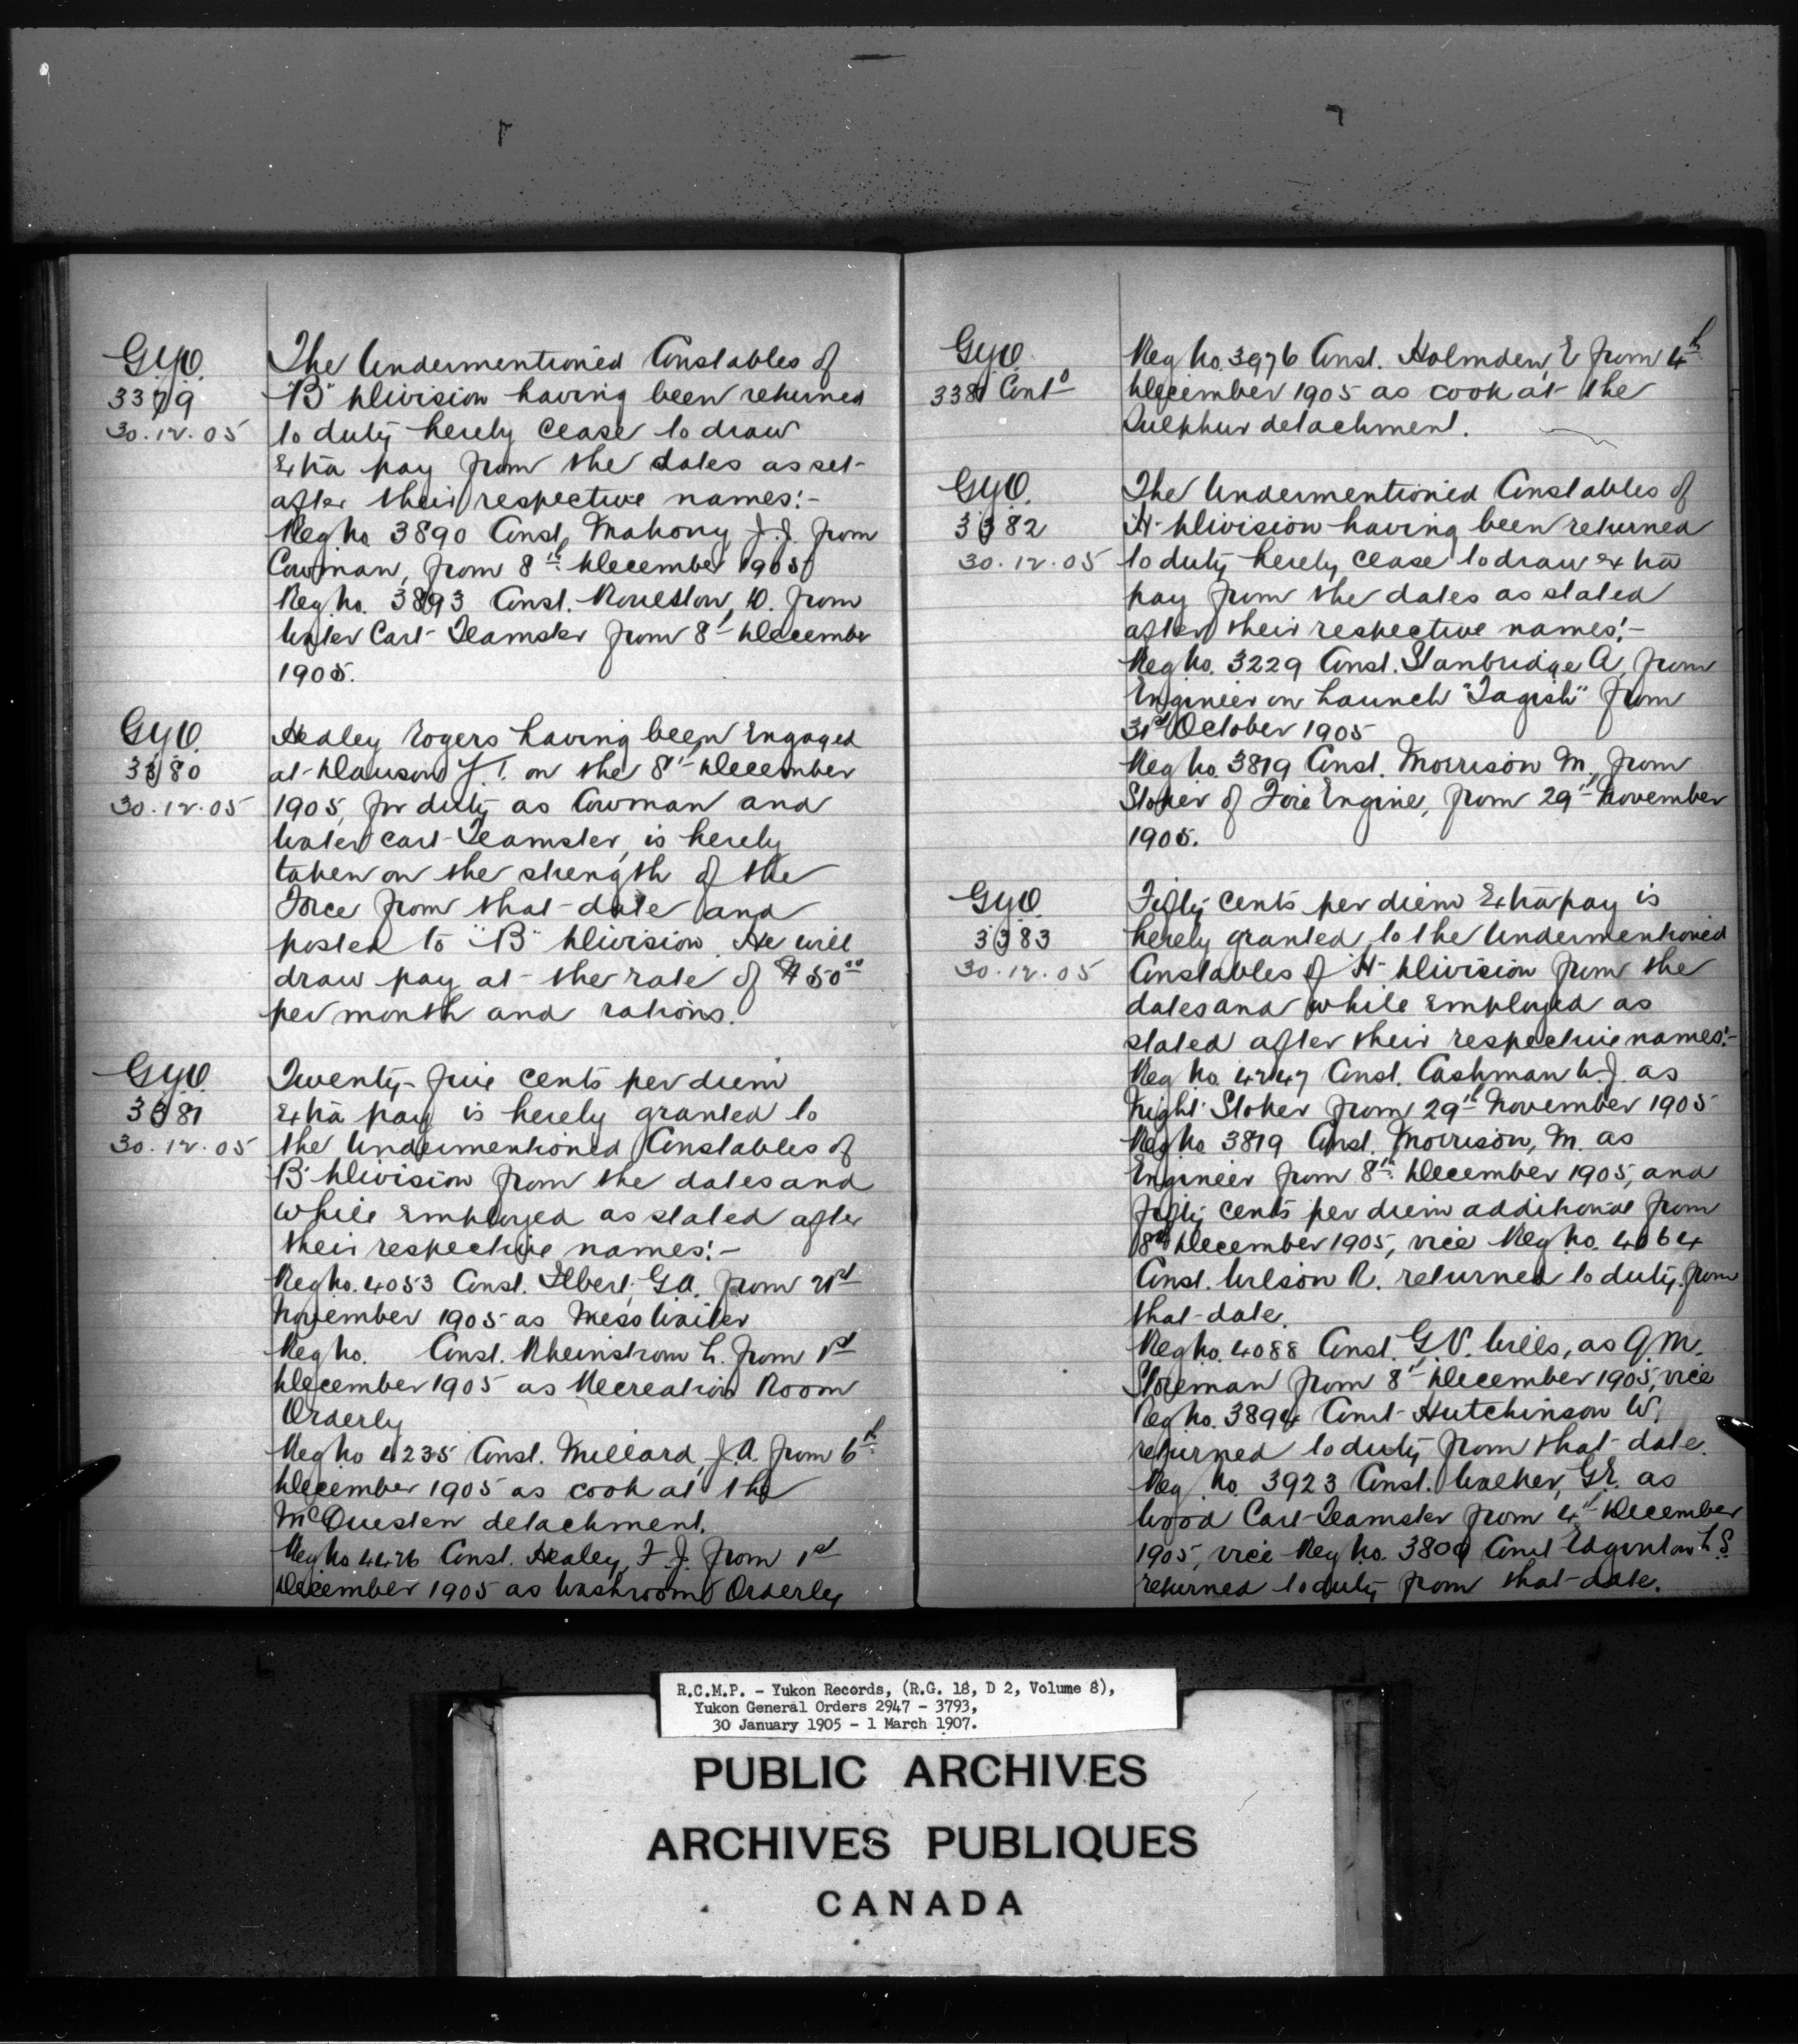 G.Y.O.
3379
30.12.05
The Undermentioned Constables of
"B" Division having been returned
to duty hereby cease to draw
Extra pay from the dates as set
after their respective names:-
Reg No 3890 Const. Mahony J.J. from
Cowman, from 8th December 1905
Reg. No. 3893 Const. D. from
Water Cart Teamster from 8th December
1905.
G.Y.O.
3380
30.12.05
Healey Rogers having been Engaged
at Dawson Y.T. on the 8th December
1905, for duty as Cowman and
Water Cart Teamster, is hereby
taken on the strength of the
Force from that date and
posted to "B" Division. He will
draw pay at the rate of $50.00
per month and rations.
G.Y.O.
3381
30.12.05
Twenty-five cents per diem
Extra pay is hereby granted to
the Undermentioned Constables of
"B" Division from the dates and
while Employed as stated after
their respective names:-
Reg No. 4053 Const. Ilbert, G.A. from 21st
November 1905 as Mess Waiter
Reg No. Const. Rheinstrom L. from 1st
December 1905 as Recreation Room
Orderly
Reg No 4235 Const. Millard, J.A. from 6th
December 1905 as cook at the
McQuesten detachment.
Reg No 4426 Const. Healey, F.J. from 1st
December 1905 as Washroom Orderly
G.Y.O.
3381 Contd
Reg No. 3976 Const. Holmden, E from 4th
December 1905 as cook at the
Sulphur detachment.
G.Y.O.
3382
30.12.05
The Undermentioned Constables of
"H" Division having been returned
to duty hereby cease to draw extra
pay from the dates as stated
after their respective names:-
Reg No. 3229 Const. Stanbridge A, from
Engineer on Launch "Tagish" from
31st October 1905
Reg No. 3819 Const. Morrison M., from
Stoker of Fire Engine, from 29th November
1905.
G.Y.O.
3383
30.12.05
Fifty cents per diem Extra pay is
hereby granted to the Undermentioned
Constables of "H" Division from the
dates and while Employed as
stated after their respective names:-
Reg No. 4247 Const. Cashman W.J. as
Night Stoker from 29th November 1905
Reg No 3819 Const. Morrison, M. as
Engineer from 8th December 1905, and
fifty cents per diem additional from
8th December 1905, vice Reg No. 4064
Const. Wilson R. returned to duty from
that date.
Reg No. 4088 Const. G.V. Wills, as Q.M.
Storeman from 8th December 1905, vice
Reg No. 3894 Const Hutchinson W,
returned to duty from that date.
Reg No. 3923 Const. Walker, G.E. as
Wood Cart Teamster from 4th December
1905, vice Reg No. 3800 Const Edginton L.S.
returned to duty from that date.
R.C.M.P. - Yukon Records, (R.G. 18, D 2, Volume 8),
Yukon General Orders 2947 - 3793,
30 January 1905 - 1 March 1907.
PUBLIC ARCHIVES
ARCHIVES PUBLIQUES
CANADA